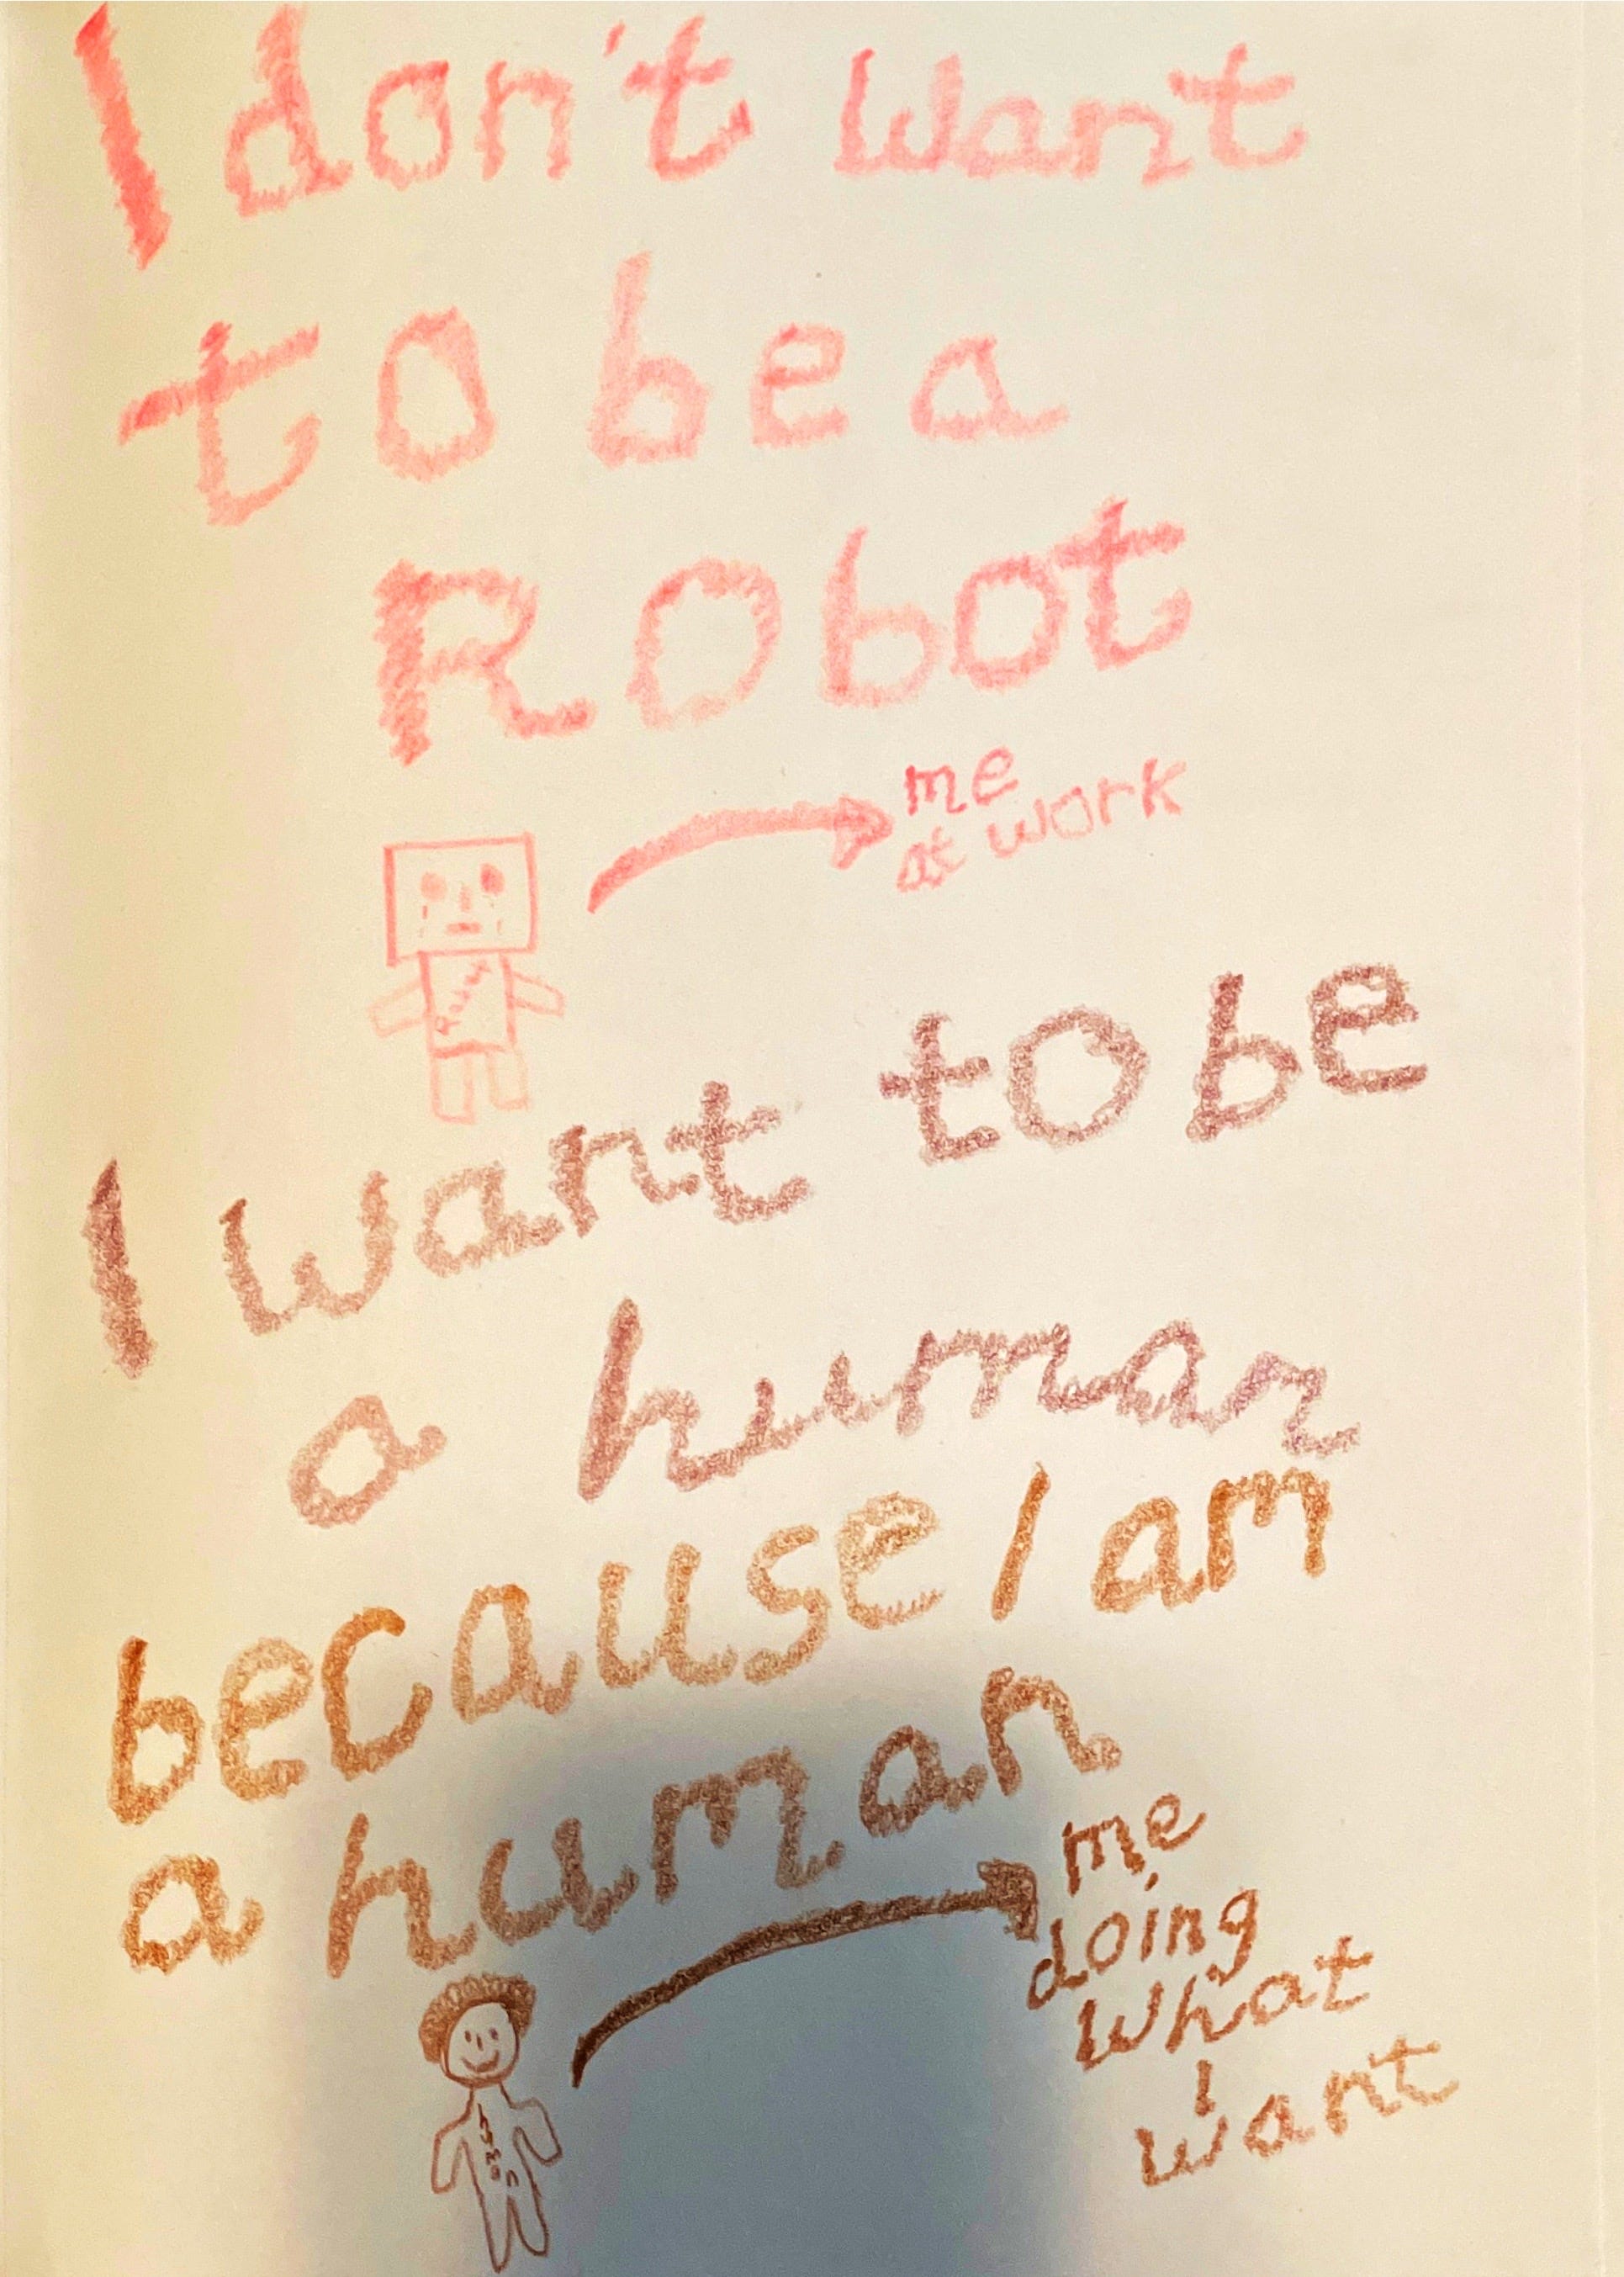 I don't want
to be a
Robot
me
at work
I want to be
a human
because I am
a human
me
doing
what
I
want
human